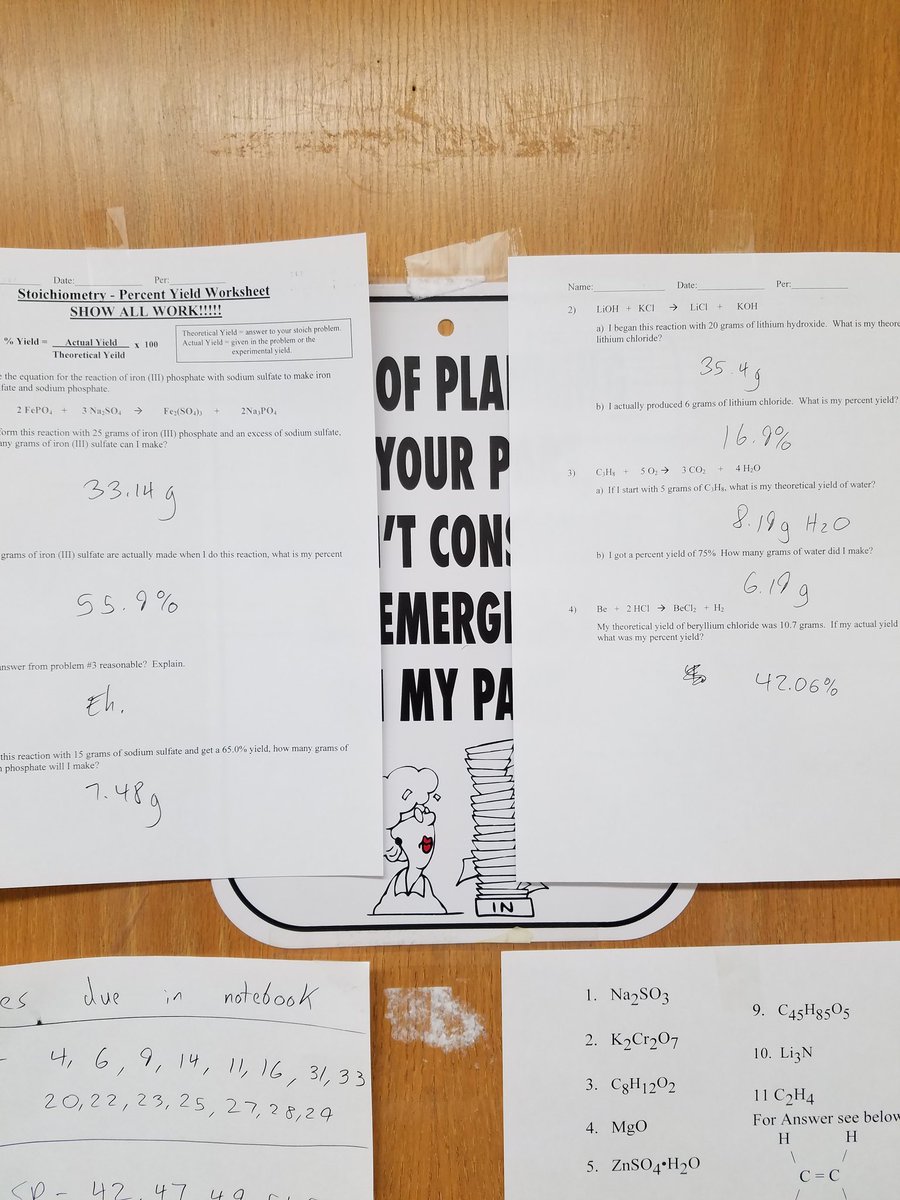 Date: Per:
Stoichiometry - Percent Yield Worksheet
SHOW ALL WORK!!!!!
% Yield = Actual Yield x 100
Theoretical Yeild
Theoretical Yield = answer to your stoich problem.
Actual Yield = given in the problem or the
experimental yield.
the equation for the reaction of iron (III) phosphate with sodium sulfate to make iron
fate and sodium phosphate.
2 FePO₄ + 3 Na₂SO₄ → Fe₂(SO₄)₃ + 2Na₃PO₄
form this reaction with 25 grams of iron (III) phosphate and an excess of sodium sulfate,
any grams of iron (III) sulfate can I make?
33.14 g
grams of iron (III) sulfate are actually made when I do this reaction, what is my percent
55.9%
answer from problem #3 reasonable? Explain.
Eh.
this reaction with 15 grams of sodium sulfate and get a 65.0% yield, how many grams of
phosphate will I make?
7.48g
OF PLA
YOUR P
'T CONS
EMERGI
MY PA
IN
Name: Date: Per:
2) LiOH + KCl → LiCl + KOH
a) I began this reaction with 20 grams of lithium hydroxide. What is my theore
lithium chloride?
35.4g
b) I actually produced 6 grams of lithium chloride. What is my percent yield?
16.9%
3) C₃H₈ + 5 O₂ → 3 CO₂ + 4 H₂O
a) If I start with 5 grams of C₃H₈, what is my theoretical yield of water?
8.19g H2O
b) I got a percent yield of 75% How many grams of water did I make?
6.19g
4) Be + 2 HCl → BeCl₂ + H₂
My theoretical yield of beryllium chloride was 10.7 grams. If my actual yield
what was my percent yield?
42.06%
es due in notebook
- 4, 6, 9, 14, 11, 16, 31, 33
20, 22, 23, 25, 27, 28, 29
42, 47, 49
1. Na₂SO₃
2. K₂Cr₂O₇
3. C₈H₁₂O₂
4. MgO
5. ZnSO₄•H₂O
9. C₄₅H₈₅O₅
10. Li₃N
11 C₂H₄
For Answer see below
H H
\ /
C = C